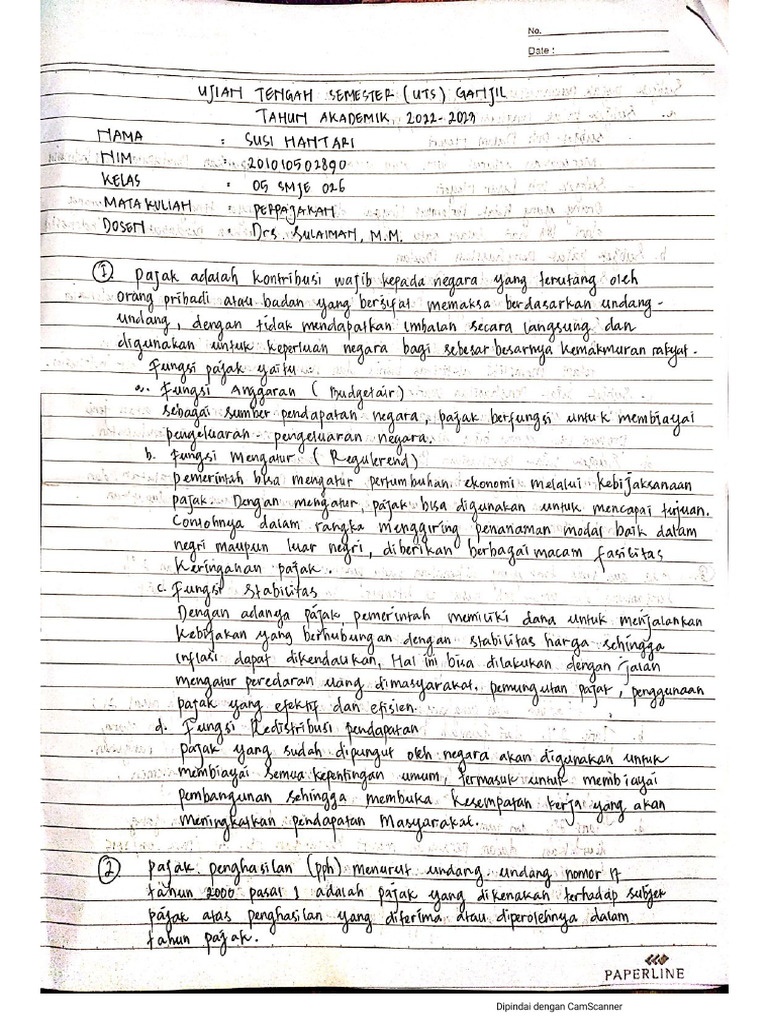 No.
Date :
UJIAN TENGAH SEMESTER (UTS) GANJIL
TAHUN AKADEMIK, 2022-2023
NAMA : SUSI HANTARI
NIM : 201010502890
KELAS : 05 SMJE 026
MATA KULIAH : PERPAJAKAN
DOSEN : Drs. SULAIMAN, M.M.
① pajak adalah kontribusi wajib kepada negara yang terutang oleh
orang pribadi atau badan yang bersifat memaksa berdasarkan undang-
undang, dengan tidak mendapatkan imbalan secara langsung dan
digunakan untuk keperluan negara bagi sebesar besarnya kemakmuran rakyat.
Fungsi pajak yaitu
a. Fungsi Anggaran (Budgetair)
sebagai sumber pendapatan negara, pajak berfungsi untuk membiayai
pengeluaran-pengeluaran negara.
b. Fungsi Mengatur (Regulerend)
pemerintah bisa mengatur pertumbuhan ekonomi melalui kebijaksanaan
pajak. Dengan mengatur, pajak bisa digunakan untuk mencapai tujuan.
Contohnya dalam rangka menggiring penanaman modal baik dalam
negri maupun luar negri, diberikan berbagai macam fasilitas
keringanan pajak.
c. Fungsi Stabilitas
Dengan adanya pajak, pemerintah memiliki dana untuk menjalankan
kebijakan yang berhubungan dengan stabilitas harga sehingga
inflasi dapat dikendalikan, Hal ini bisa dilakukan dengan jalan
mengatur peredaran uang dimasyarakat, pemungutan pajak, penggunaan
pajak yang efektif dan efisien.
d. Fungsi Redistribusi pendapatan
pajak yang sudah dipungut oleh negara akan digunakan untuk
membiayai semua kepentingan umum, termasuk untuk membiayai
pembangunan sehingga membuka kesempatan kerja yang akan
meningkatkan pendapatan Masyarakat.
② pajak penghasilan (pph) menurut undang-undang nomor 17
tahun 2000 pasal 1 adalah pajak yang dikenakan terhadap subjek
pajak atas penghasilan yang diterima atau diperolehnya dalam
tahun pajak.
PAPERLINE
Dipindai dengan CamScanner